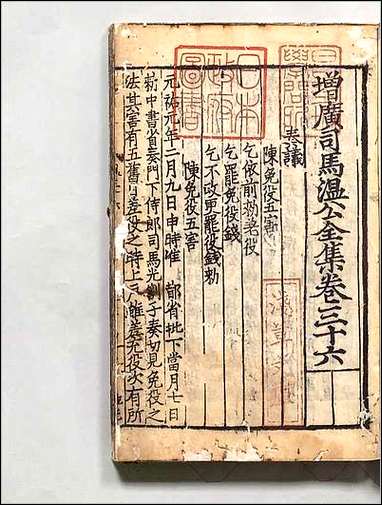 增廣司馬溫公全集卷三十六
奏議
陳免役五害
乞依前勑差役
乞罷免役錢
乞不改更罷役錢勑
陳免役五害
元祐元年二月九日申時准 都省批下當月七日
中書省門下侍郎司馬光劄子奏切見免役之
法其害有五舊日差役之時上戶雖差充役次有所
日本
政府
圖書